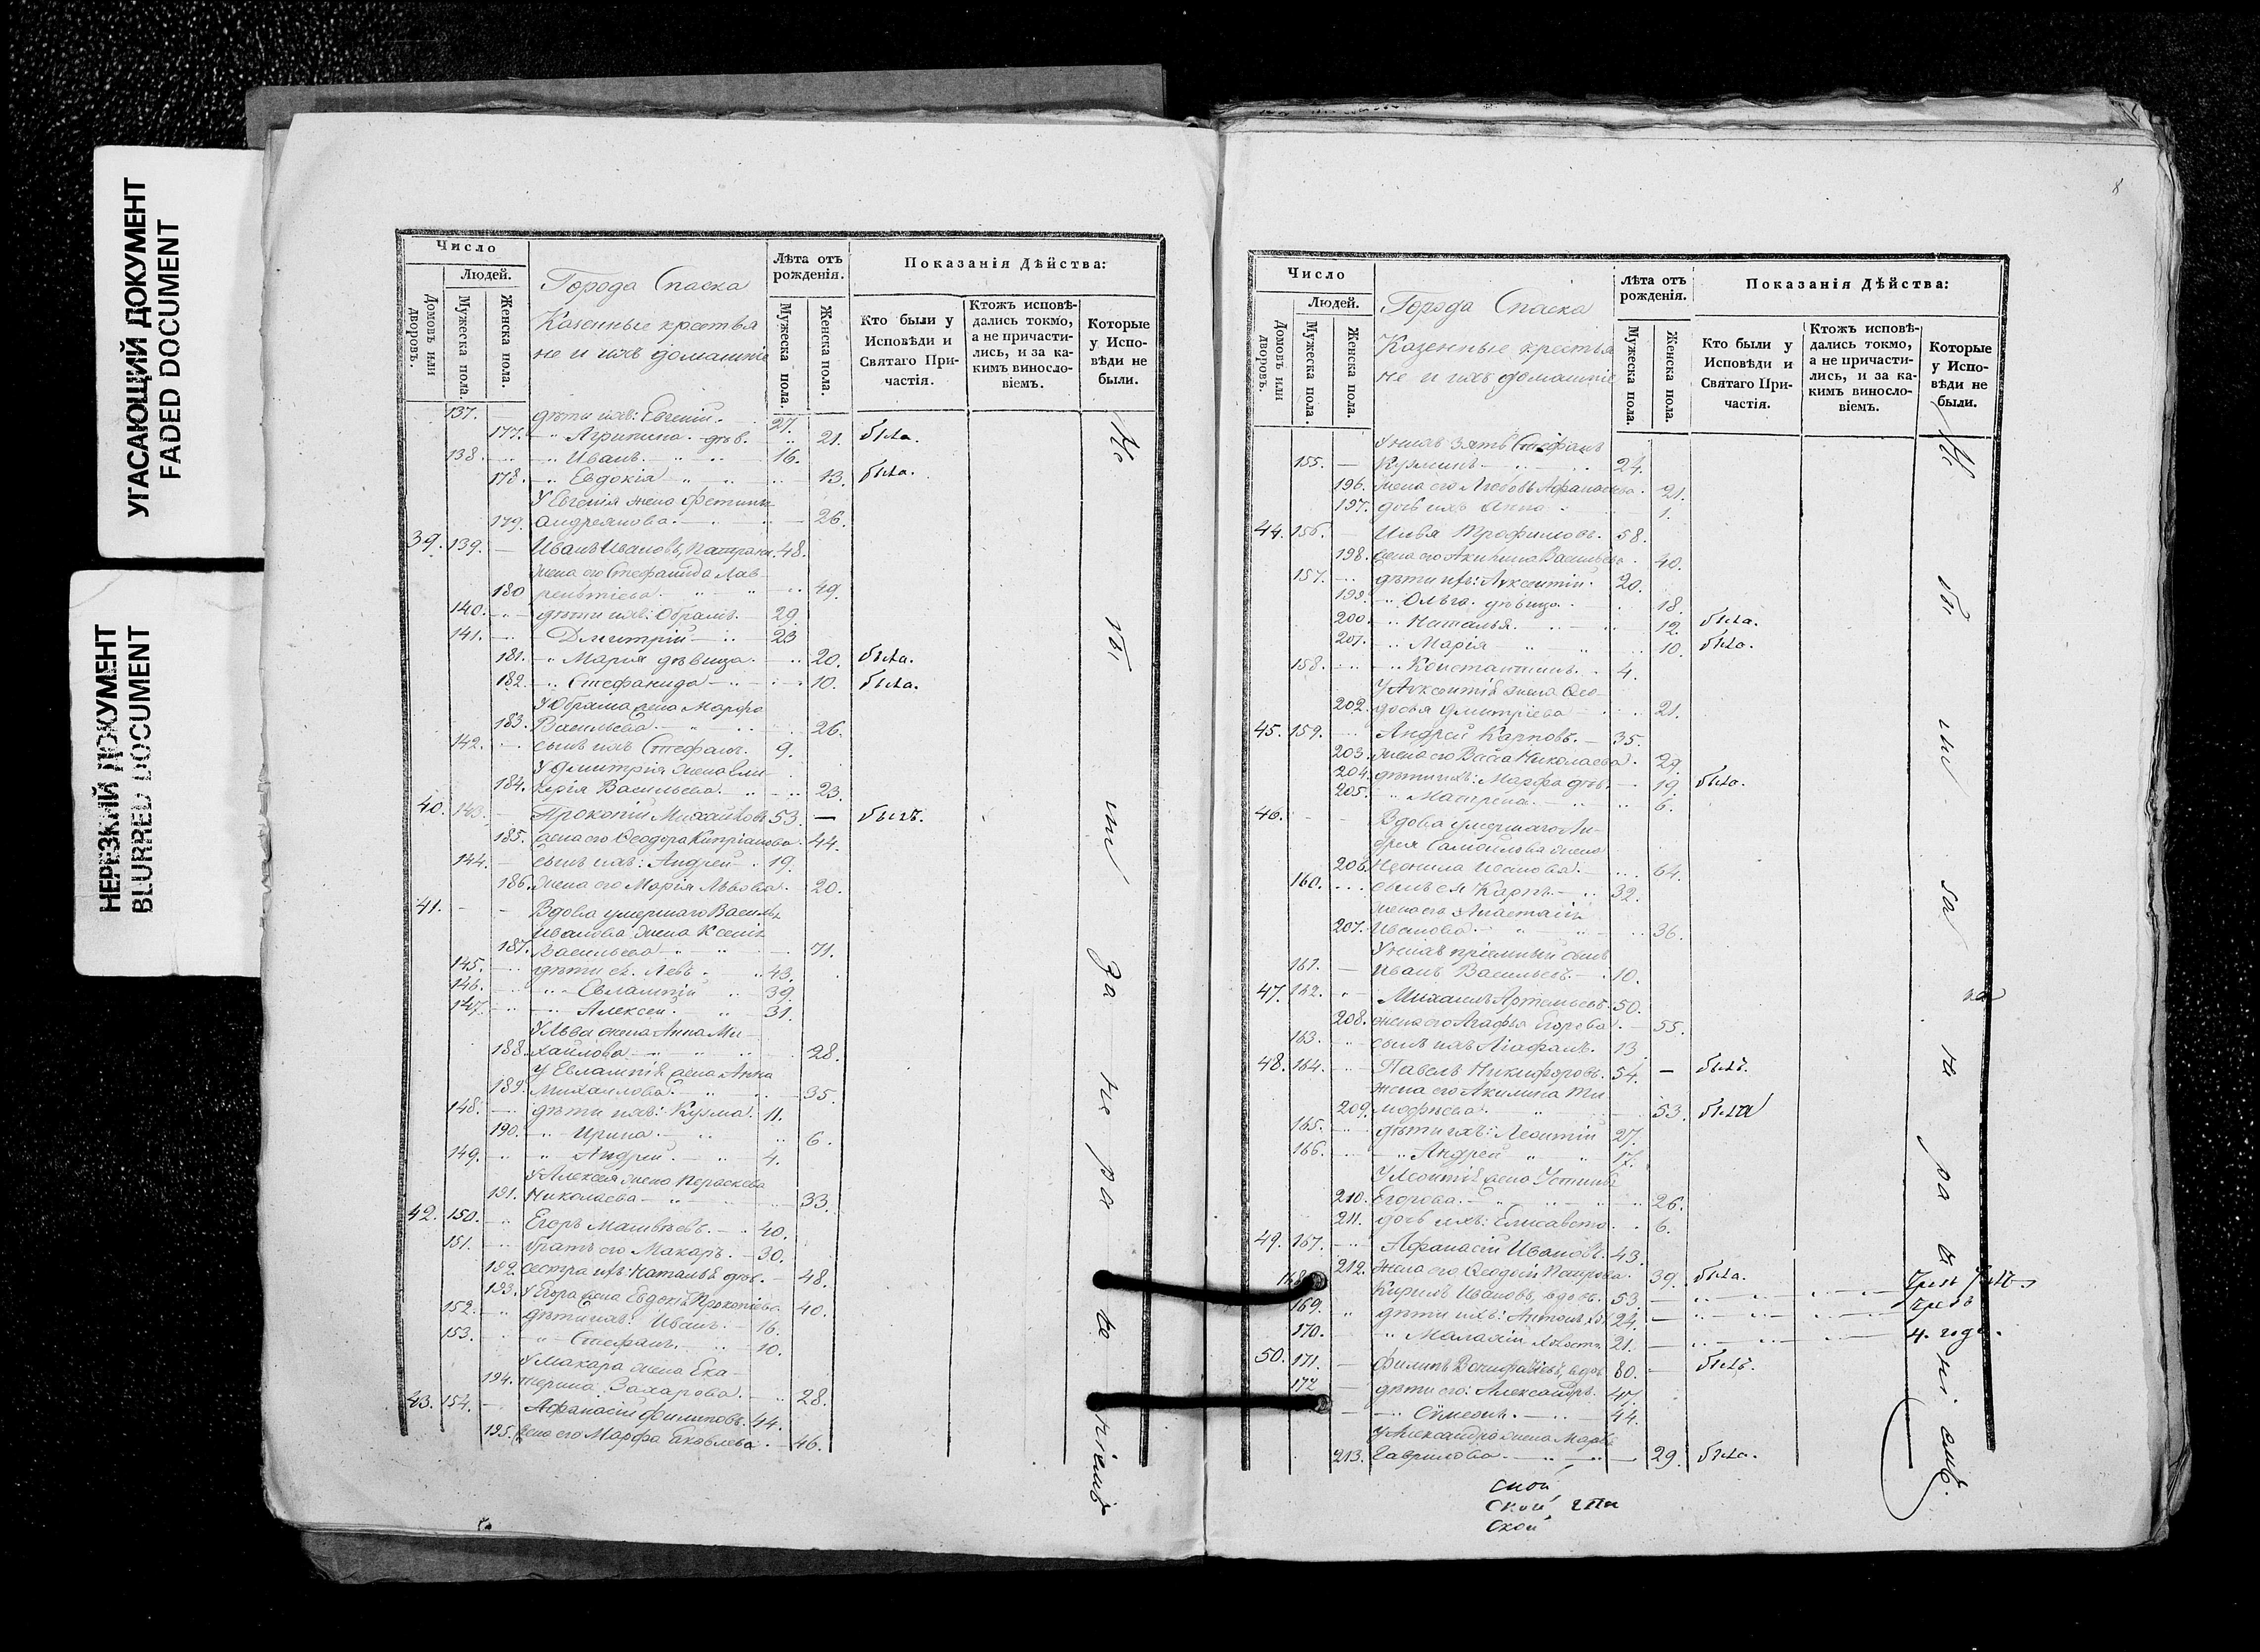 УГАСАЮЩИЙ ДОКУМЕНТ
FADED DOCUMENT
НЕРЕЗКИЙ ДОКУМЕНТ
BLURRED DOCUMENT
Число
Людей.
Домовъ или дворовъ.
Мужеска пола.
Женска пола.
Города Спаска
Казенные крестья
не и ихъ домашніе
Лѣта отъ рожденія.
Мужеска пола.
Женска пола.
Показанія Дѣйства:
Кто были у Исповѣди и Святаго Причастія.
Ктожъ исповѣдались токмо, а не причастились, и за какимъ винословіемъ.
Которые у Исповѣди не были.
137. дѣти ихъ: Евгеній. 27.
177. Агрипина дѣв. 21. была.
138. Иванъ 16.
178. Евдокія 13. была.
У Евгенія жена Фетинья
179. Андреянова 26.
39. 139. Иванъ Ивановъ 48.
жена его Стефанида Лав
180 рентіева 49.
140. дѣти ихъ: Обрамъ 29.
141. Дмитрій 23
181. Марія дѣвица 20. была.
182. Стефанида 10. была.
У Обрама жена Марфа
183. Васильева 26.
142. сынъ ихъ Стефанъ 9.
У Дмитрія жена Гли
184. керія Васильева 23.
40. 143. Прокопій Михайловъ 53. — былъ.
185. жена его Ѳеодора Кипріанова 44.
144. сынъ ихъ: Андрей 19.
186. жена его Марія Львова 20.
41. Вдова умершаго Василья
Иванова жена Ксенія
187. Васильева 71.
145. дѣти ея: Левъ 43.
146. Евлампій 39.
147. Алексей 31.
У Льва жена Анна Ми
188. хайлова 28.
У Евлампія жена Анна
189. Михайлова 35.
148. дѣти ихъ: Кузма 11.
190. Ирина 6.
149. Андрей 4.
У Алексея жена Пераскева
191. Николаева 33.
42. 150. Егоръ Матвѣевъ 40.
151. братъ его Макаръ 30.
192. сестра ихъ: Наталья дѣв. 48.
193. У Егора жена Евдокія Прокопіева 40.
152. дѣти ихъ: Иванъ 16.
153. Стефанъ 10.
У Макара жена Ека
194. терина Захарова 28.
43. 154. Афанасій Филиповъ 44.
195. жена его Марфа Яковлева 46.
Не бы ли за не ра де ніемъ
8
Число
Людей.
Домовъ или дворовъ.
Мужеска пола
Женска пола.
Города Спаска
Казенные крестья
не и ихъ домашніе
Лѣта отъ рожденія.
Мужеска пола.
Женска пола.
Показанія Дѣйства:
Кто были у Исповѣди и Святаго Причастія.
Ктожъ исповѣдались токмо, а не причастились, и за какимъ винословіемъ.
Которые у Исповѣди не были.
У нихъ зять Стефанъ
155. Кузминъ 24.
196. жена его Любовь Афанасьева 21.
197. дочь ихъ Анна 1.
44. 156. Илья Трофимовъ 58.
198. жена его Акилина Васильева 40.
157. дѣти ихъ: Авксентій 20.
199. Ольга дѣвица 18.
200. Наталья 12. была.
201. Марія 10. была.
158. Константинъ 4.
У Авксентія жена Ѳео
202. досья Дмитріева 21.
45. 159. Андрей Карповъ 35.
203. жена его Васса Николаева 29.
204. дѣти ихъ: Марфа дѣв. 19. была.
205. Матрена 6.
46. Вдова умершаго Ан
дрея Самойлова жена
206. Неонила Иванова 64.
160. сынъ ея Карпъ 32.
жена его Анастасія
207. Иванова 36.
У нихъ пріемный сынъ
161. Иванъ Васильевъ 10.
47. 162. Михаилъ Артемьевъ 50.
208. жена его Агафья Егорова 55.
163. сынъ ихъ Агафонъ 13
48. 164. Павелъ Никифоровъ 54. — былъ.
жена его Акилина Ти
209. мофѣева 53. была
165. дѣти ихъ: Леонтій 27.
166. Андрей 17.
У Леонтія жена Устинья
210. Егорова 26.
211. дочь ихъ: Елисавета 6.
49. 167. Афанасій Ивановъ 43.
212. жена его Ѳеодосія Петрова 39. была.
168. Кирилъ Ивановъ, вдовъ 53.
169. дѣти ихъ: Антонъ 24.
170. Малахій холостъ 21. 4. года.
50. 171. Филипъ Вонифатьевъ, вдов 80. былъ.
172 дѣти его: Александръ 47.
Сѵмеонъ 44.
У Александра жена Марья
213. Гаврилова 29. была.
Не бы ли за не ра де ні емъ.
ской
ской
ской